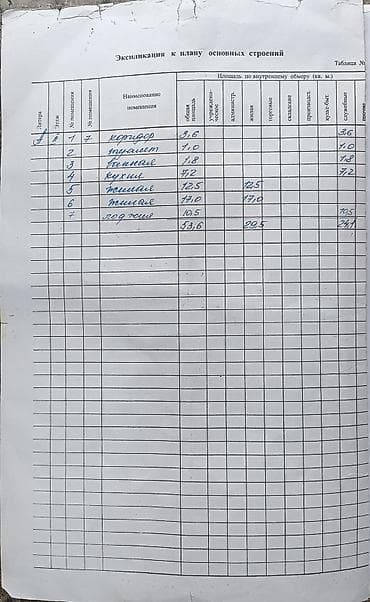 Экспликация к плану основных строений
Таблица №
Литера Этаж № помещения № помещения Наименование помещения Площадь по внутреннему обмеру (кв. м.)
общая площадь учрежденческие администр. жилая торговые складские производст. культ-быт. служебные
1 7 коридор 3,6 3,6
2 туалет 1,0 1,0
3 ванная 1,8 1,8
4 кухня 7,2 7,2
5 жилая 12,5 12,5
6 жилая 17,0 17,0
7 лоджия 10,5 10,5
53,6 29,5 24,1